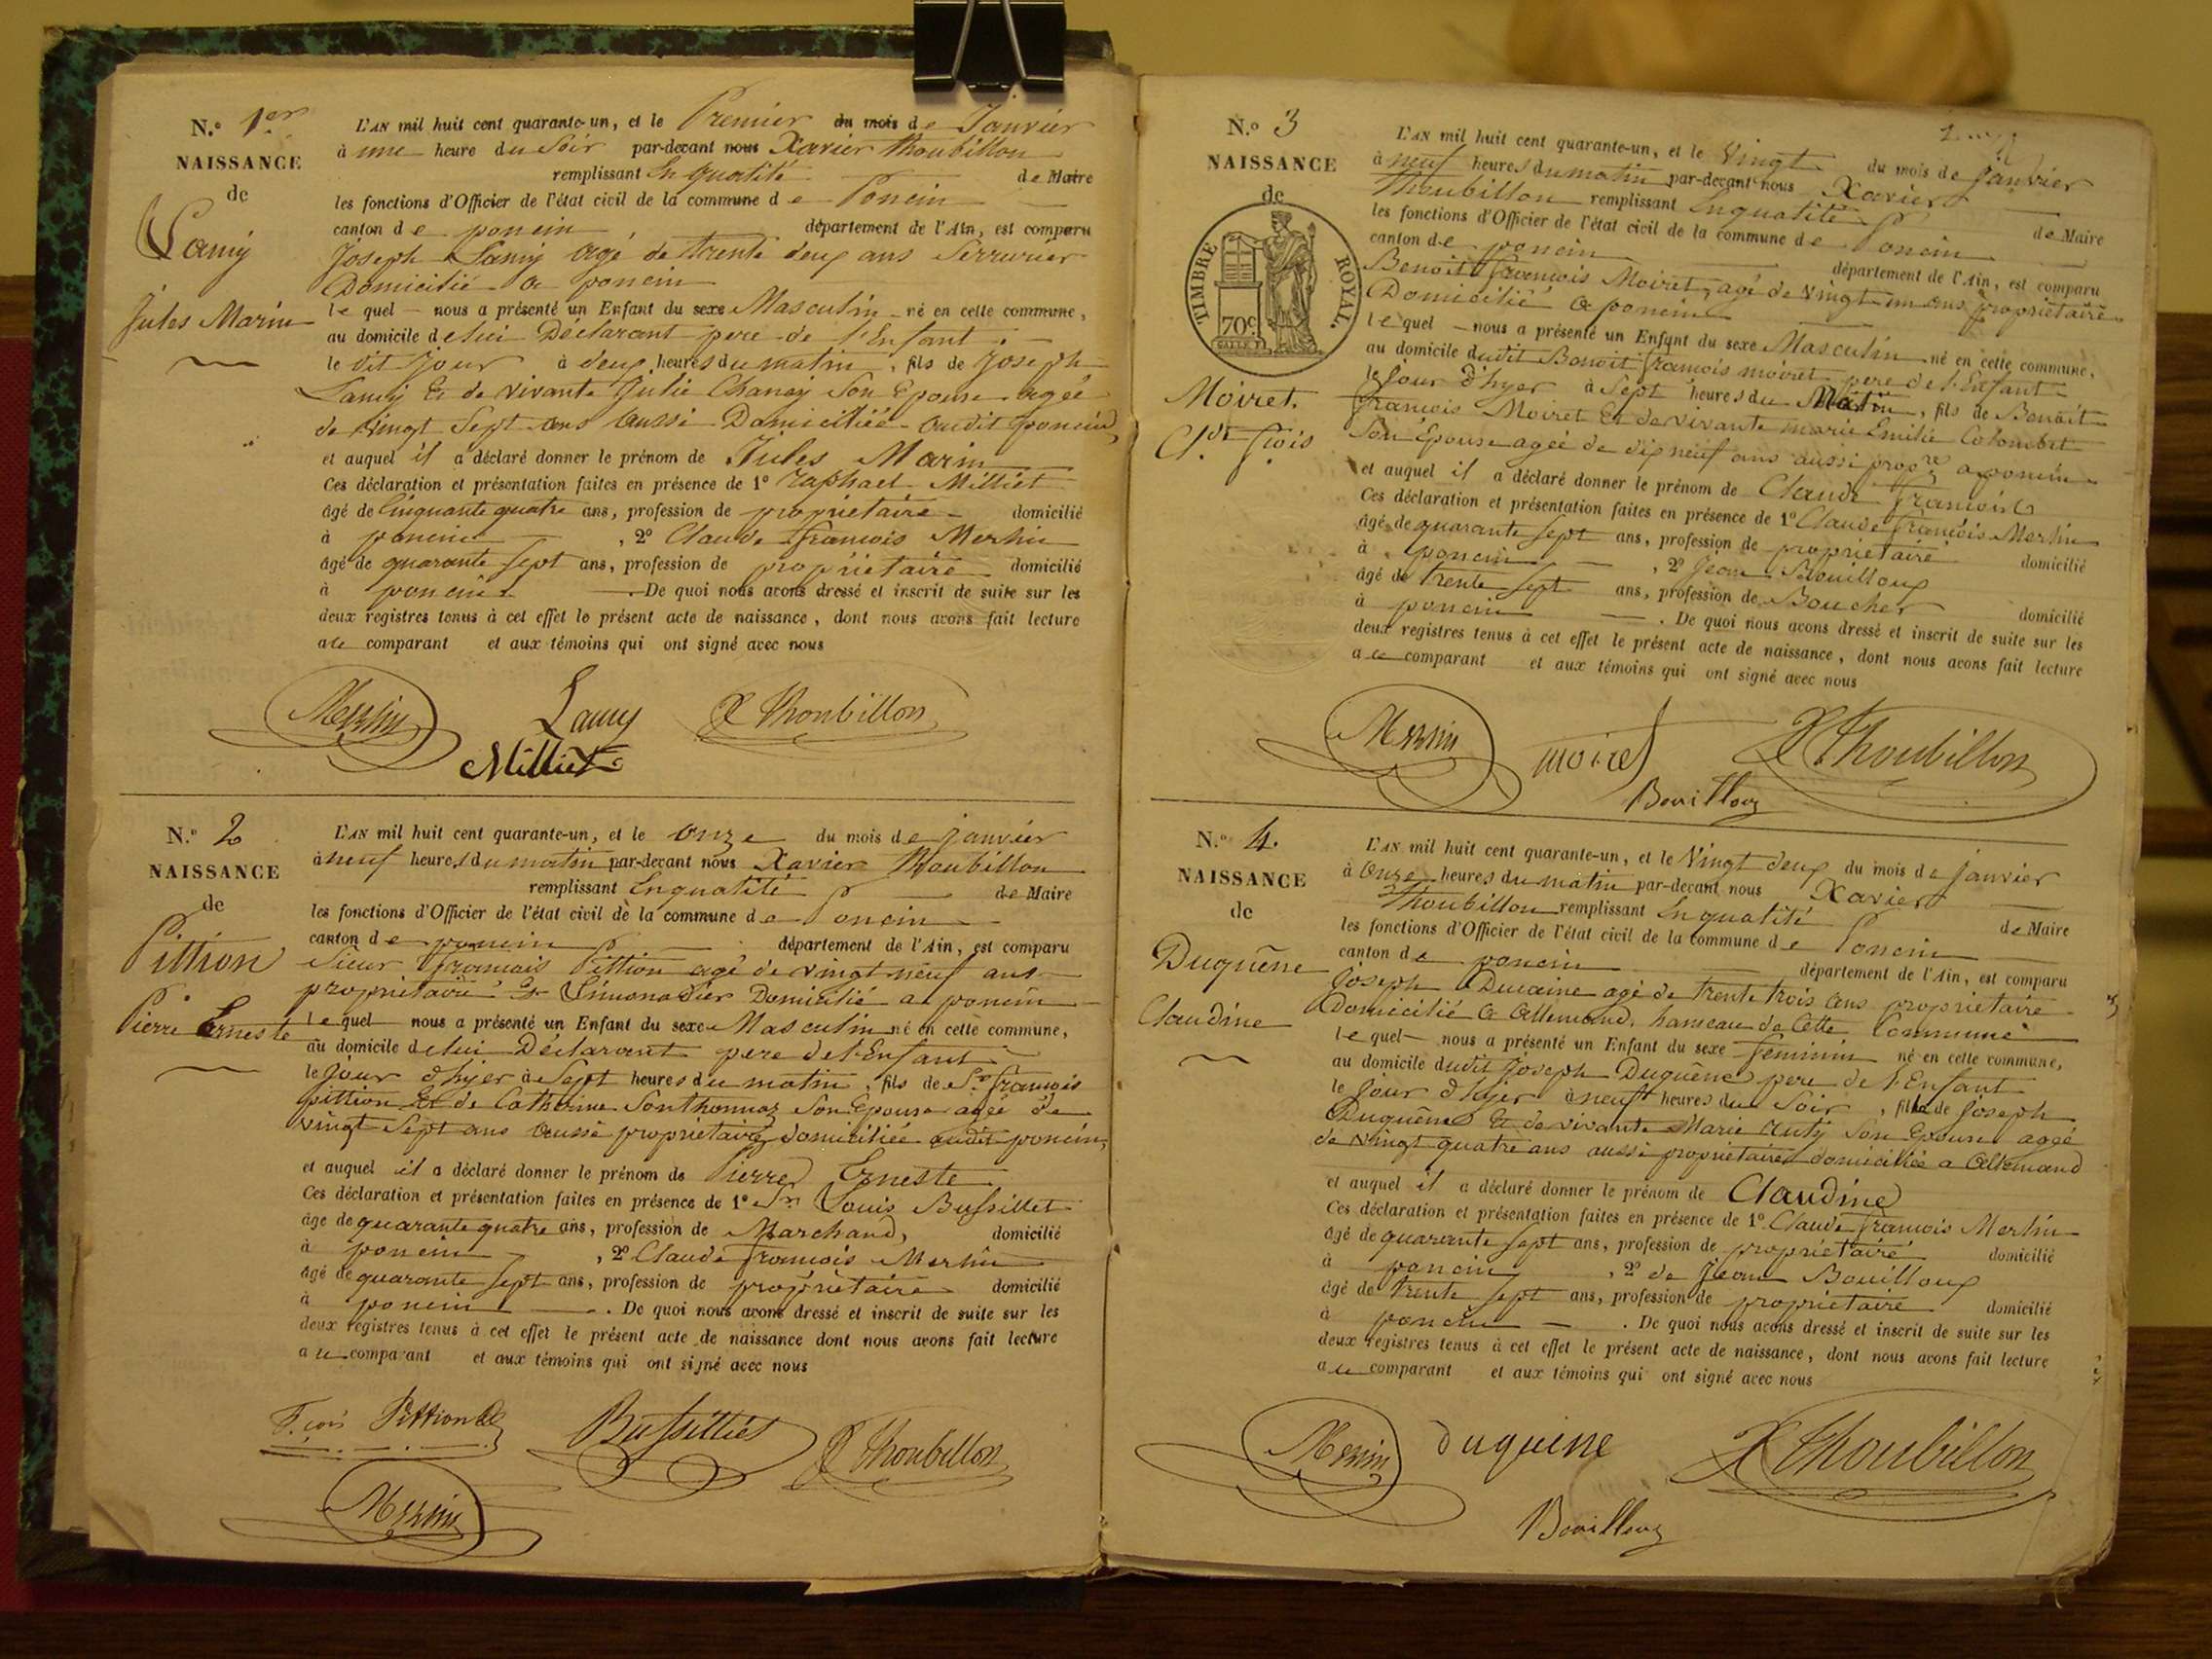 N.° 1.er
NAISSANCE
de
Lamy
Jules Marin
L'AN mil huit cent quarante-un, et le Premier du mois de Janvier
à une heure du Soir par-devant nous Xavier Thoubillon
remplissant En qualité de Maire
les fonctions d'Officier de l'état civil de la commune de Poncin
canton de poncin département de l'Ain, est comparu
Joseph Lamy agé de trente deux ans Serrurier
Domicilié a poncin
le quel nous a présenté un Enfant du sexe Masculin né en cette commune,
au domicile de lui Déclarant pere de l'Enfant
le dit jour à deux heures du matin, fils de Joseph
Lamy Et de vivante Julie Chanay Son Epouse agée
de vingt Sept ans aussi Domiciliée audit poncin,
et auquel il a déclaré donner le prénom de Jules Marin
Ces déclaration et présentation faites en présence de 1° Raphael Milliet
âgé de Cinquante quatre ans, profession de propriétaire domicilié
à poncin, 2° Claude francois Merlin
âgé de quarante sept ans, profession de propriétaire domicilié
à poncin. De quoi nous avons dressé et inscrit de suite sur les
deux registres tenus à cet effet le présent acte de naissance, dont nous avons fait lecture
au comparant et aux témoins qui ont signé avec nous
Merlin Lamy X Thoubillon
Milliet
N.° 2
NAISSANCE
de
Pittion
Pierre Erneste
L'AN mil huit cent quarante-un, et le onze du mois de janvier
à neuf heures du matin par-devant nous Xavier Thoubillon
remplissant En qualité de Maire
les fonctions d'Officier de l'état civil de la commune de Poncin
canton de poncin département de l'Ain, est comparu
Sieur francois Pittion agé de vingt neuf ans
propriétaire Et Limonadier Domicilié a poncin
le quel nous a présenté un Enfant du sexe Masculin né en cette commune,
au domicile de lui Déclarant pere de l'Enfant
le jour d'hyer à Sept heures du matin, fils de S.r francois
pittion Et de Catherine Sonthonnaz Son Epouse agée de
vingt Sept ans aussi propriétaire domiciliée audit poncin,
et auquel il a déclaré donner le prénom de Pierre Erneste
Ces déclaration et présentation faites en présence de 1° S.r Louis Bussillet
âge de quarante quatre ans, profession de Marchand, domicilié
à poncin, 2° Claude francois Merlin
âgé de quarante sept ans, profession de propriétaire domicilié
à poncin. De quoi nous avons dressé et inscrit de suite sur les
deux registres tenus à cet effet le présent acte de naissance dont nous avons fait lecture
au comparant et aux témoins qui ont signé avec nous
F.çois Pittion Bussilliet X Thoubillon
Merlin
N.° 3
NAISSANCE
de
TIMBRE ROYAL.
70c.
Moiret.
Cl.de f.çois
L'AN mil huit cent quarante-un, et le vingt du mois de janvier
à neuf heures du matin par-devant nous Xavier
Thoubillon remplissant En qualité de Maire
les fonctions d'Officier de l'état civil de la commune de Poncin
canton de poncin département de l'Ain, est comparu
Benoit francois Moiret, agé de vingt un ans, propriétaire
Domicilié a poncin
le quel nous a présenté un Enfant du sexe Masculin né en cette commune,
au domicile dudit Benoit francois moiret pere de l'Enfant
le jour d'hyer à Sept heures du Matin, fils de Benoit
francois Moiret Et de vivante marie Emilie Colombet
Son Epouse agée de dix neuf ans aussi prop.re a poncin
et auquel il a déclaré donner le prénom de Claude francois
Ces déclaration et présentation faites en présence de 1° Claude francois Merlin
âgé de quarante sept ans, profession de propriétaire domicilié
à poncin, 2° Jean Bouilloux
âgé de trente sept ans, profession de Boucher domicilié
à poncin. De quoi nous avons dressé et inscrit de suite sur les
deux registres tenus à cet effet le présent acte de naissance, dont nous avons fait lecture
au comparant et aux témoins qui ont signé avec nous
Merlin moiret X Thoubillon
Bouilloux
N.° 4.
NAISSANCE
de
Duquêne
Claudine
L'AN mil huit cent quarante-un, et le Vingt deux du mois de janvier
à Onze heures du matin par-devant nous Xavier
Thoubillon remplissant En qualité de Maire
les fonctions d'Officier de l'état civil de la commune de Poncin
canton de poncin département de l'Ain, est comparu
Joseph Ducaine agé de trente trois ans propriétaire
Domicilié a Allemand, hameau de Cette Commune
le quel nous a présenté un Enfant du sexe féminin né en cette commune,
au domicile dudit Joseph Duquêne pere de l'Enfant
le jour d'hyer à neuf heures du Soir, fille de Joseph
Duquêne Et de vivante Marie Son Epouse aggé
de vingt quatre ans aussi propriétaire domiciliée a Allemand
et auquel il a déclaré donner le prénom de Claudine
Ces déclaration et présentation faites en présence de 1° Claude francois Merlin
âgé de quarante sept ans, profession de propriétaire domicilié
à poncin, 2° de Jean Bouilloux
âgé de trente sept ans, profession de propriétaire domicilié
à poncin. De quoi nous avons dressé et inscrit de suite sur les
deux registres tenus à cet effet le présent acte de naissance, dont nous avons fait lecture
au comparant et aux témoins qui ont signé avec nous
Merlin duquene X Thoubillon
Bouilloux